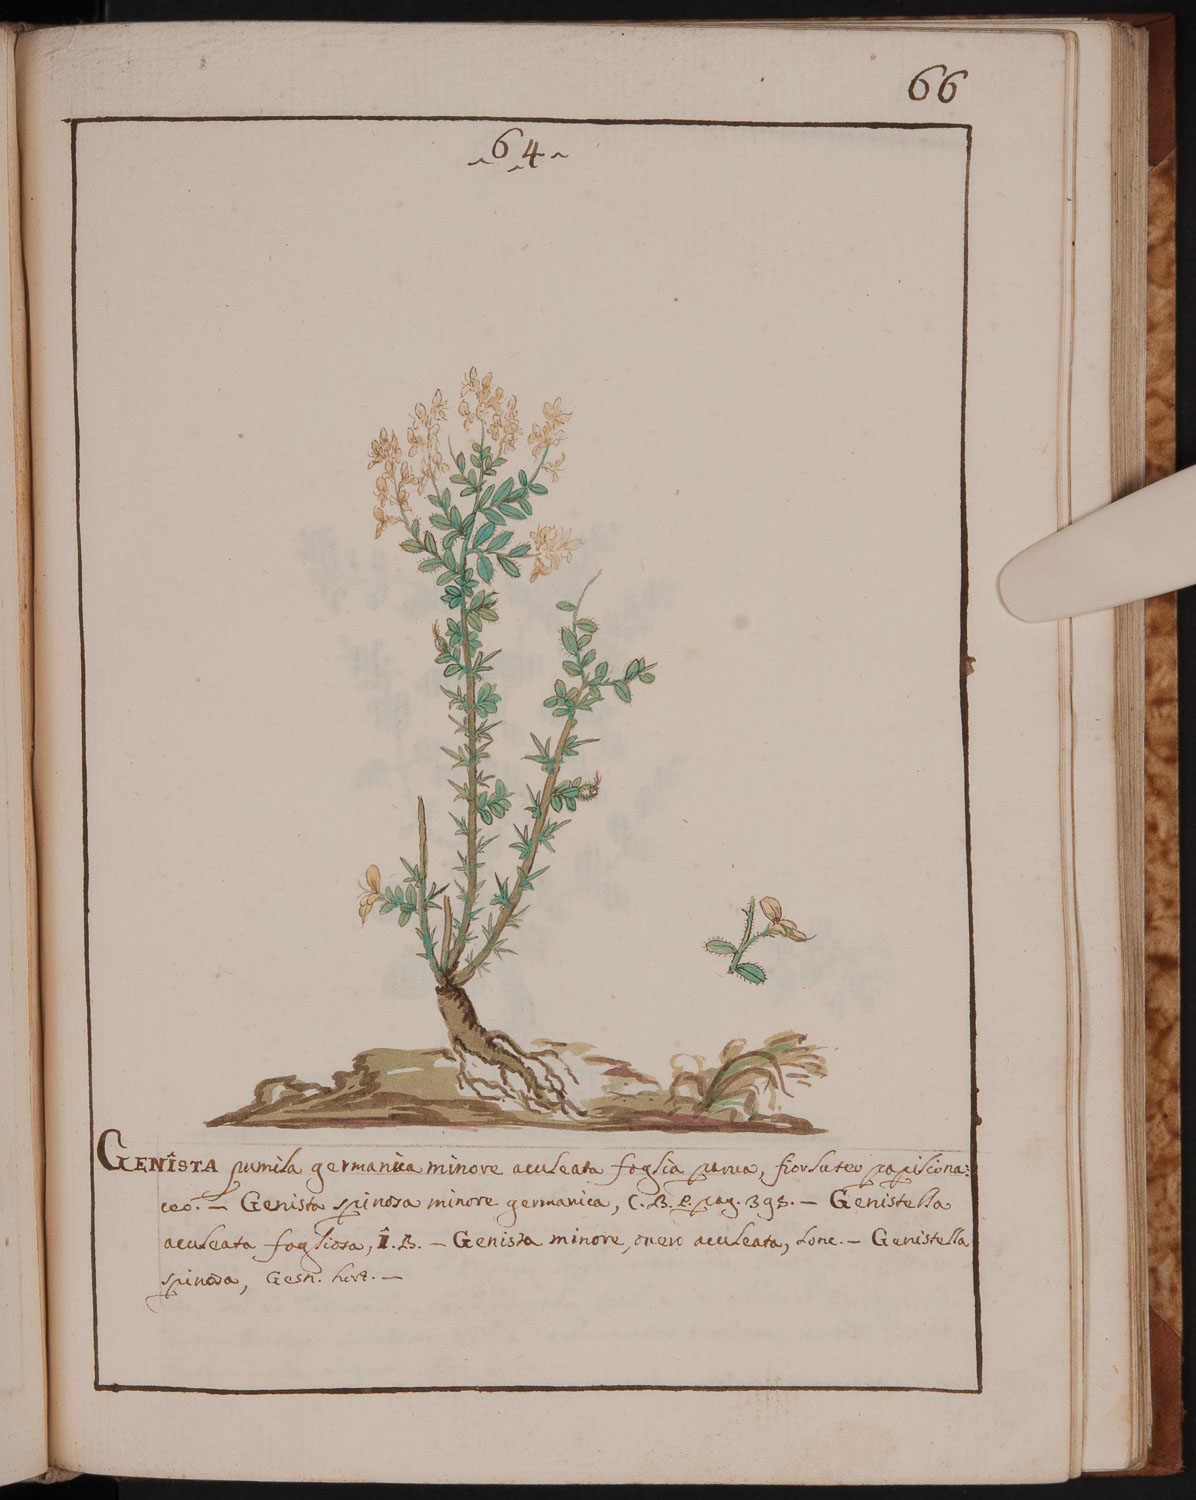 66
64
GENÎSTA pumila germanica minore aculeata foglia parua, fior luteo papiliona:
ceo. — Genista spinosa minore germanica, C.B.P. pag. 395. — Genistella
aculeata fogliosa, Î.B. — Genista minore, ouero aculeata, Lonc. — Genistella
spinosa, Gesn. hort. —